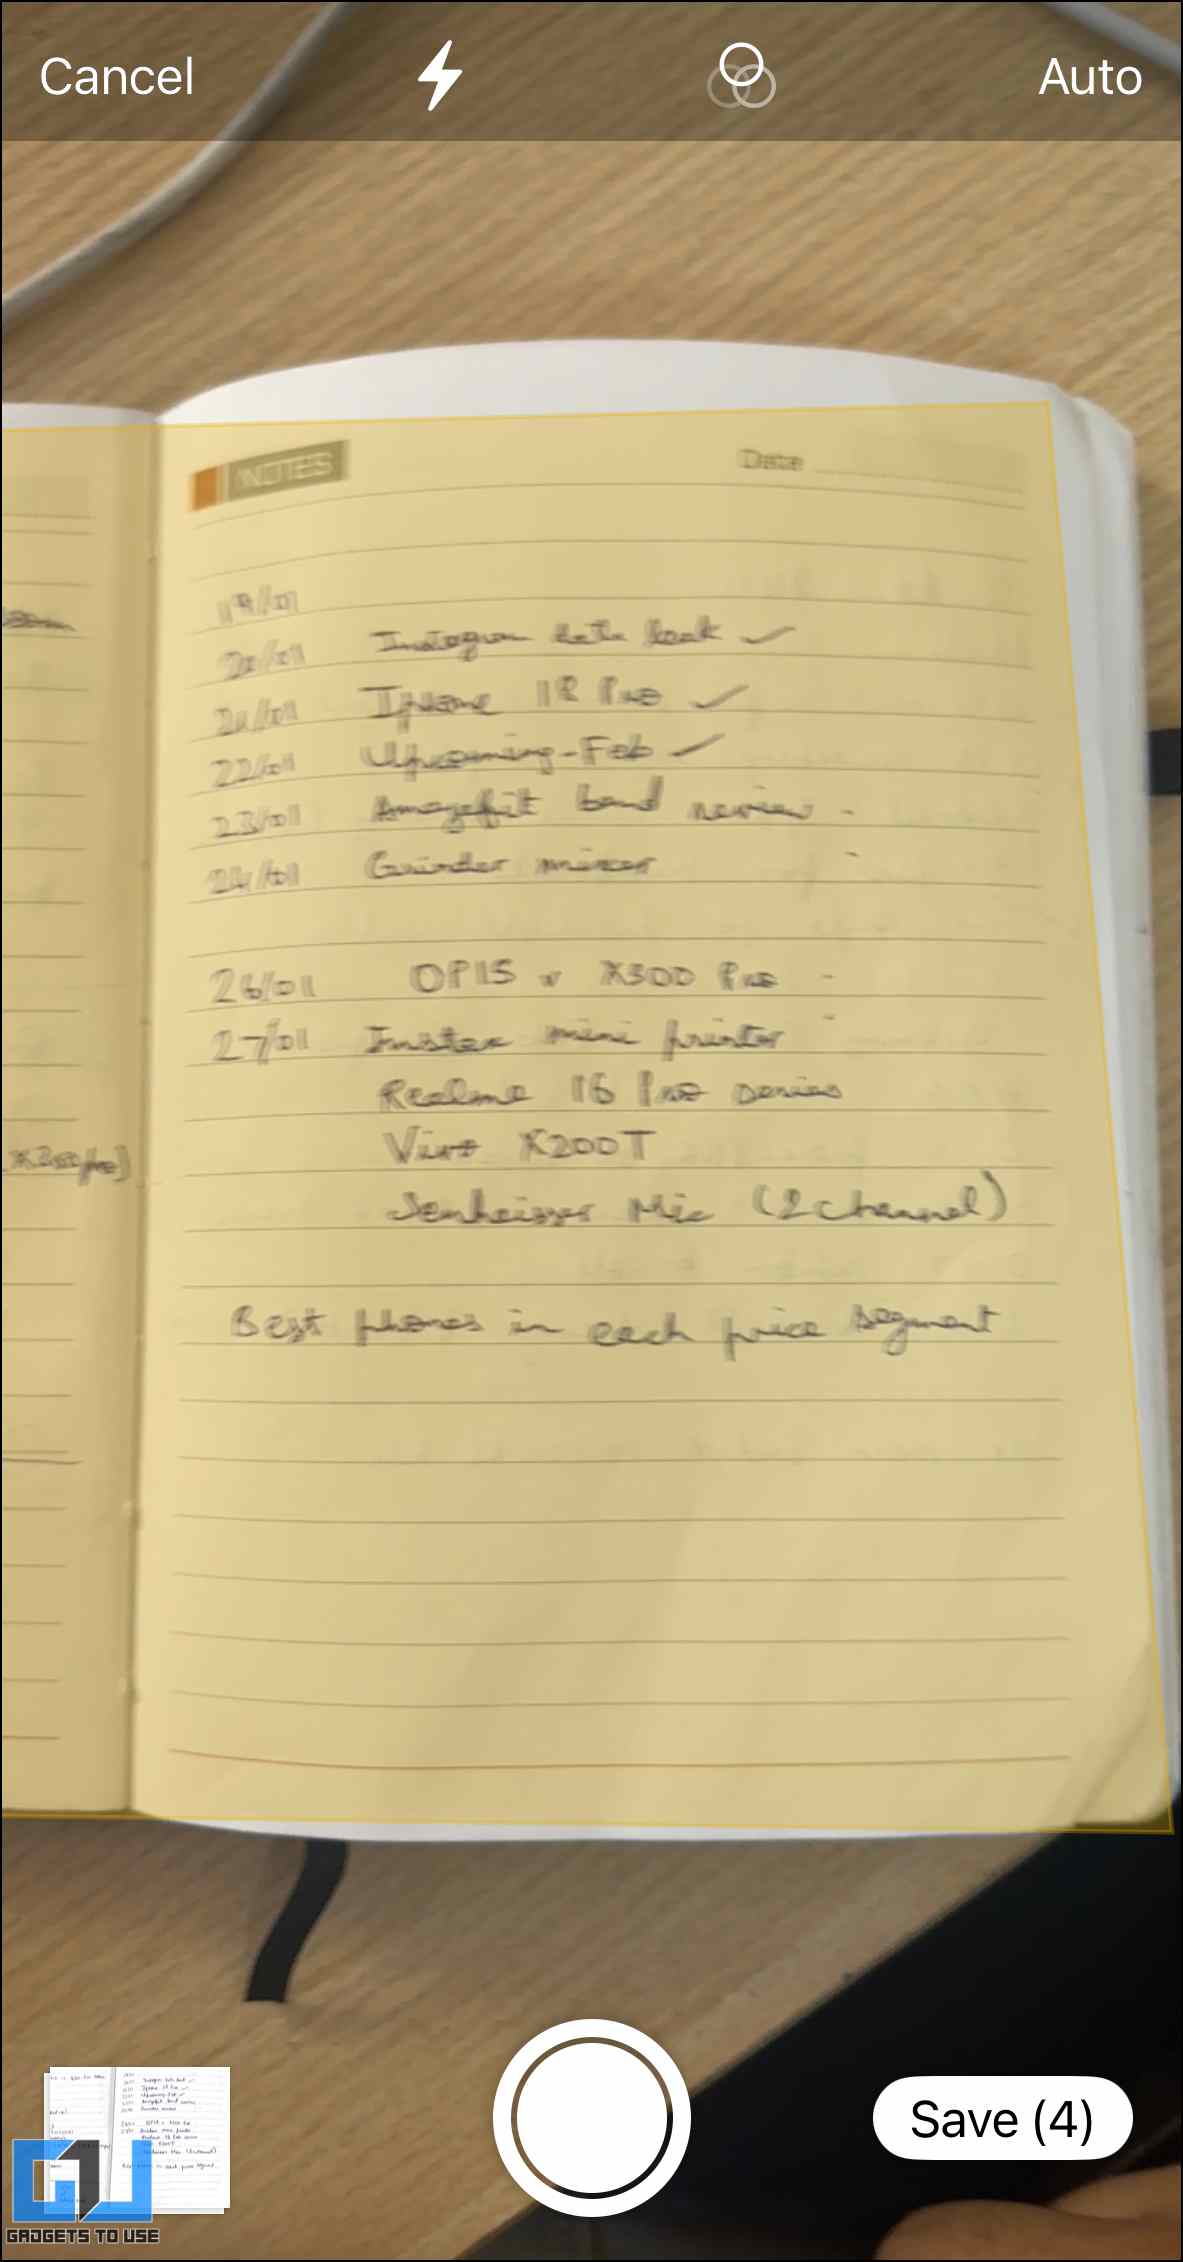 Cancel
Auto
NOTES
Date
19/01
20/01 Instagram data leak ✓
21/01 Iphone 18 Pro ✓
22/01 Upcoming-Feb ✓
23/01 Amazefit band review -
24/01 Grinder mixer -
26/01 OP15 v X300 Pro -
27/01 Instax mini printer -
Realme 16 Pro series
Vivo X200T
X300 pro)
Senheisser Mic (2 channel)
Best phones in each price segment
Save (4)
GADGETS TO USE